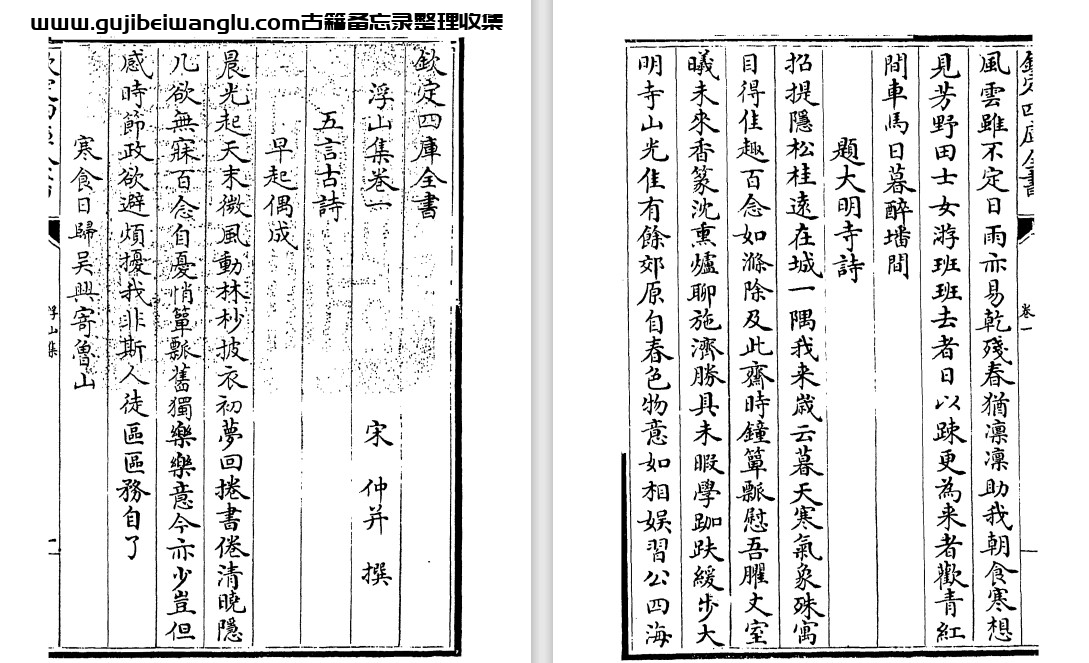 www.gujibeiwanglu.com古籍备忘录整理收集
欽定四庫全書
浮山集卷一
宋 仲并 撰
五言古詩
早起偶成
晨光起天末微風動林杪披衣初夢回捲書倦清曉隱
几欲無寐百念自憂悄簞瓢舊獨樂樂意今亦少豈但
感時節政欲避煩擾我非斯人徒區區務自了
寒食日歸吳興寄魯山
浮山集
一
欽定四庫全書
卷一
風雲雖不定日雨亦易乾殘春猶凛凛助我朝食寒想
見芳野田士女游班班去者日以踈更為来者歡青紅
間車馬日暮醉墦間
題大明寺詩
招提隱松桂遠在城一隅我来歲云暮天寒氣象殊寓
目得佳趣百念如滌除及此齋時鐘簞瓢慰吾臞丈室
曦未來香篆沈熏爐聊施濟勝具未暇學跏趺緩步大
明寺山光佳有餘郊原自春色物意如相娱習公四海